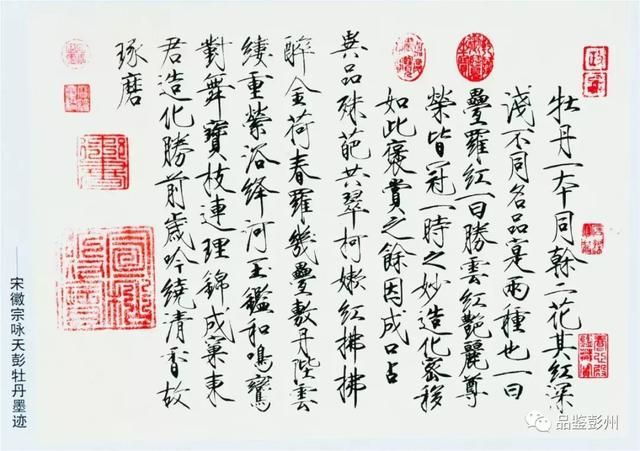 牡丹一本同榦二花其紅深
淺不同名品寔兩種也一曰
疊羅紅一曰勝雲紅艷麗尊
榮皆冠一時之妙造化密移
如此褒賞之餘因成口占
異品殊葩共翠柯嫩紅拂拂
醉金荷春羅幾疊敷丹陛雲
縷重縈浴絳河玉鑑和鳴鸞
對舞寶枝連理錦成窠東
君造化勝前歲吟繞清香故
琢磨
——宋徽宗咏天彭牡丹墨迹
品鉴彭州